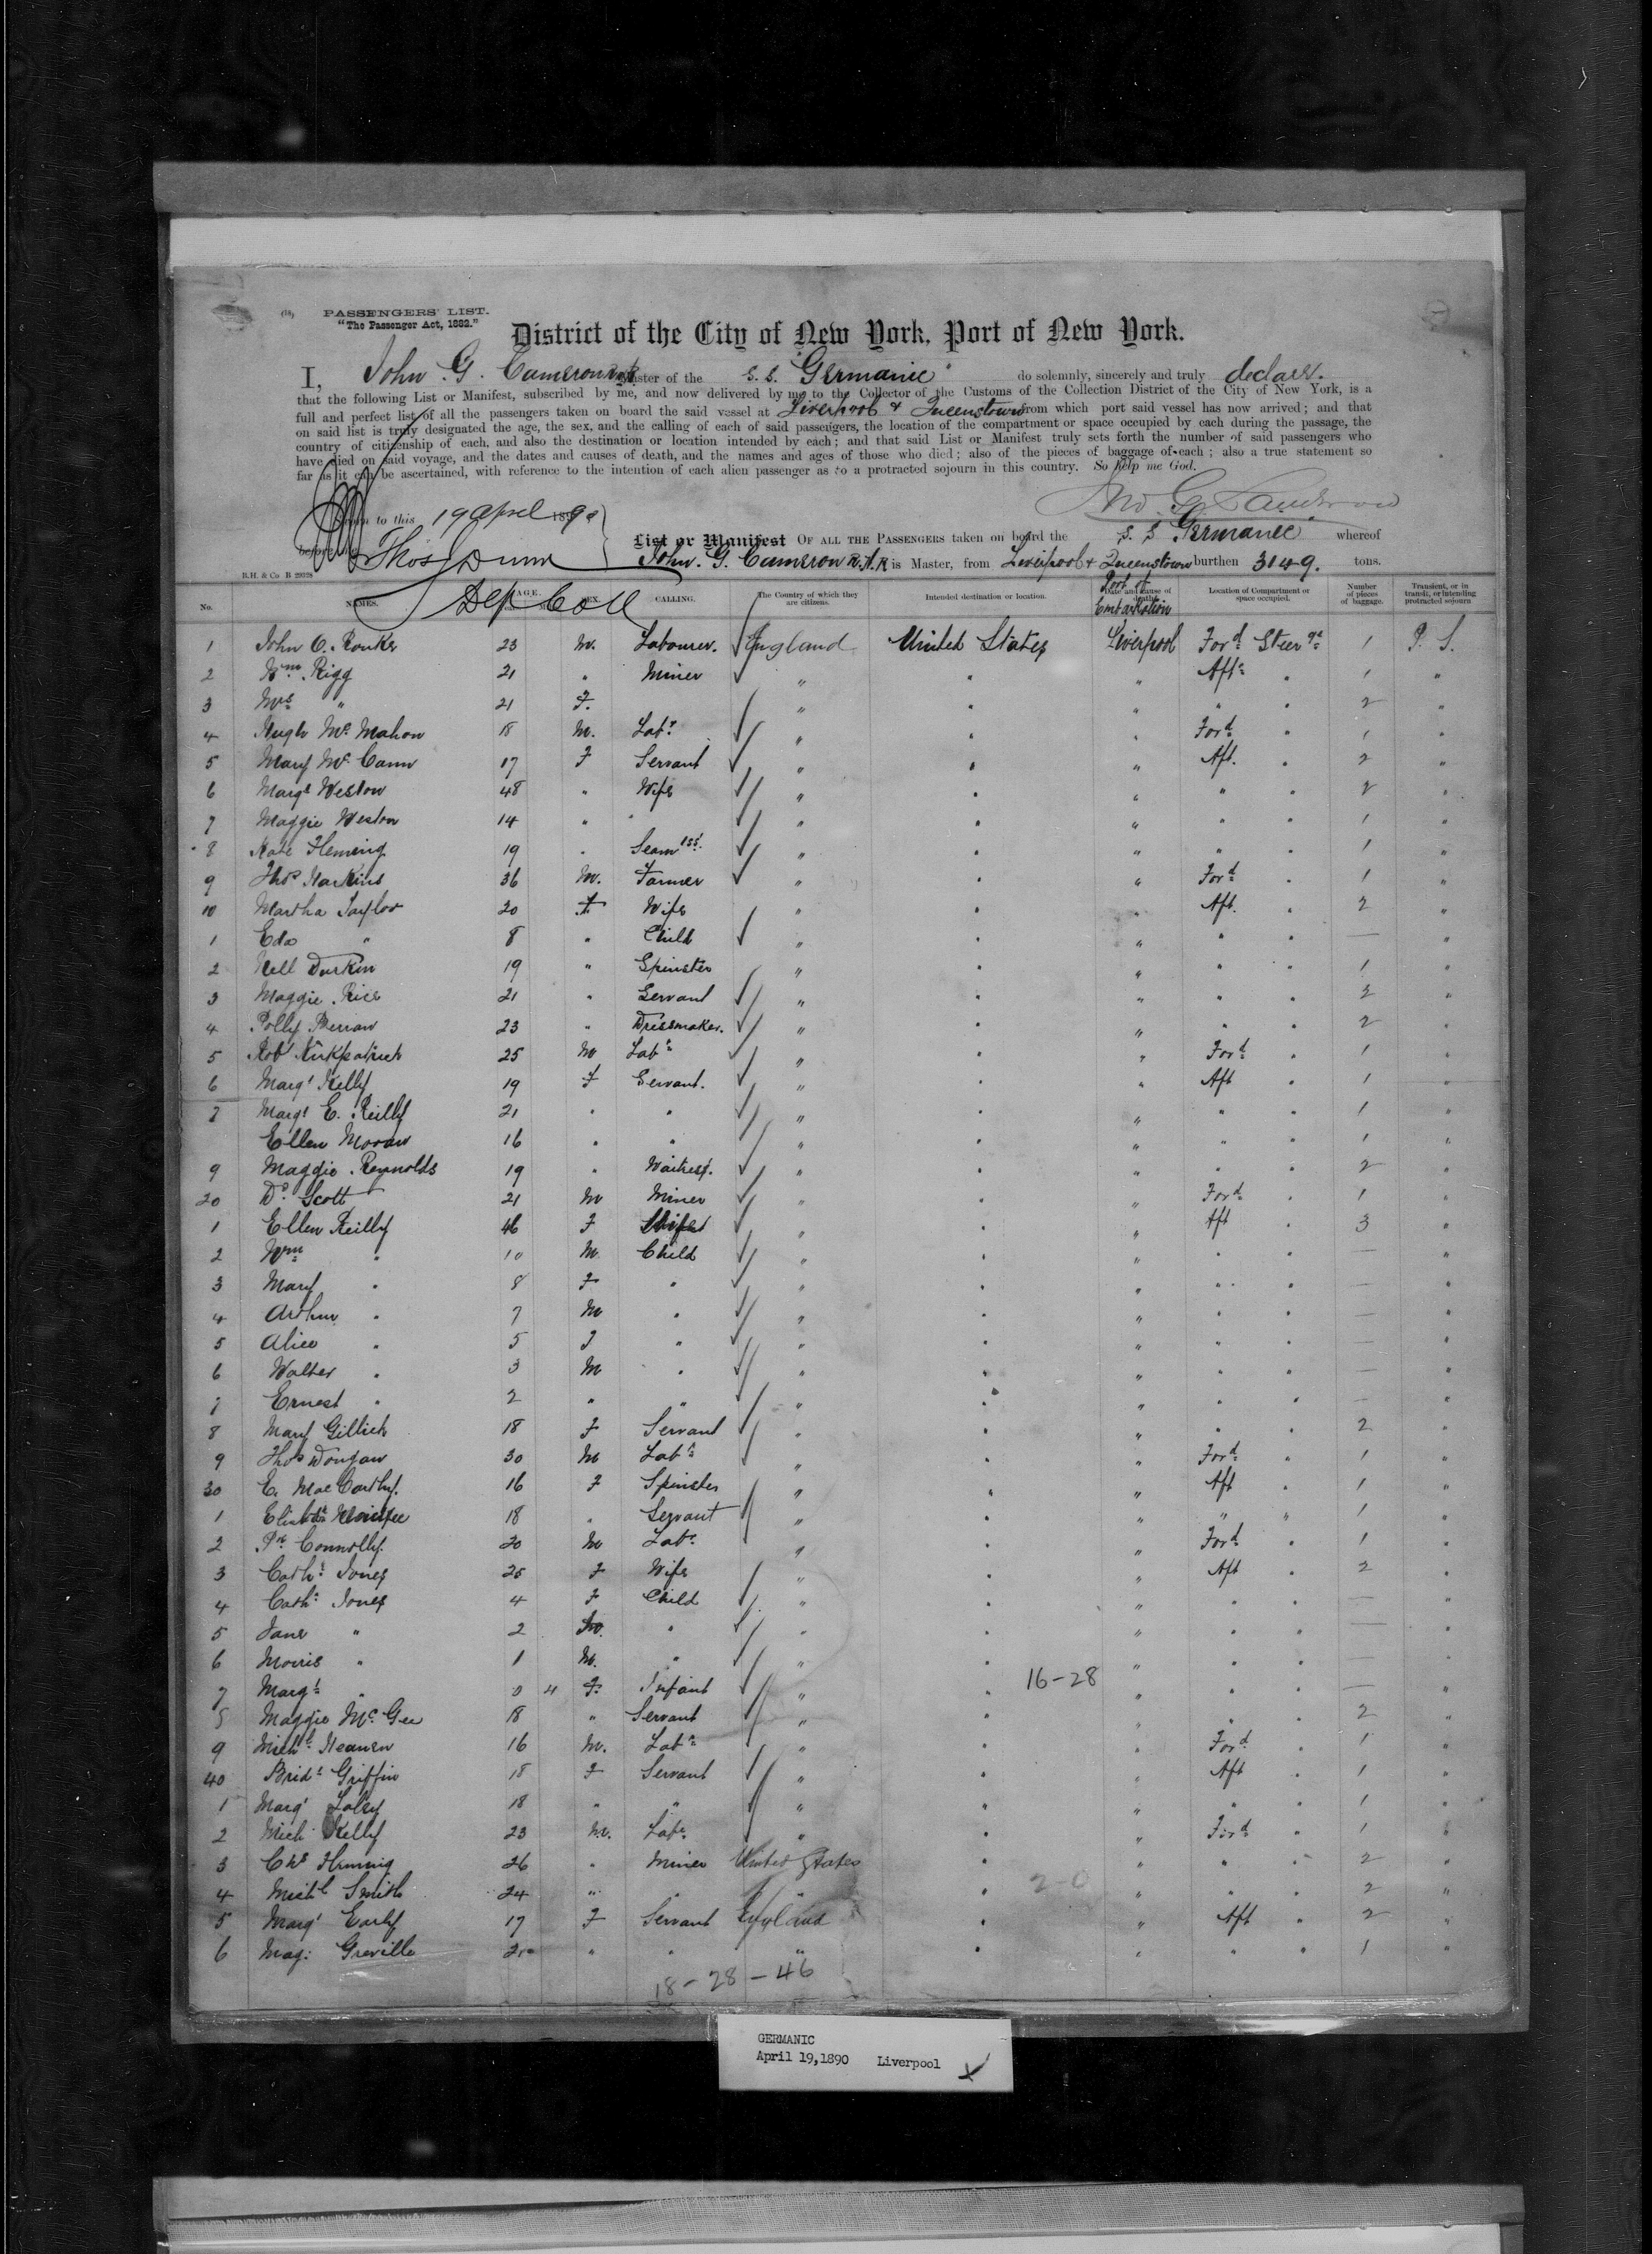 (18) PASSENGERS' LIST.
"The Passenger Act, 1882."
District of the City of New York, Port of New York.
I, John G. Cameron Master of the S.S. "Germanic" do solemnly, sincerely and truly declare
that the following List or Manifest, subscribed by me, and now delivered by me to the Collector of the Customs of the Collection District of the City of New York, is a
full and perfect list of all the passengers taken on board the said vessel at Liverpool & Queenstown from which port said vessel has now arrived; and that
on said list is truly designated the age, the sex, and the calling of each of said passengers, the location of the compartment or space occupied by each during the passage, the
country of citizenship of each, and also the destination or location intended by each; and that said List or Manifest truly sets forth the number of said passengers who
have died on said voyage, and the dates and causes of death, and the names and ages of those who died; also of the pieces of baggage of each; also a true statement so
far as it can be ascertained, with reference to the intention of each alien passenger as to a protracted sojourn in this country. So help me God.
Jno. G. Cameron
to this 19 April 1890
before
Thos Dunn
Dep Coll
List or Manifest OF ALL THE PASSENGERS taken on board the S.S. Germanic whereof
John. G. Cameron R.N.R is Master, from Liverpool & Queenstown burthen 3149. tons.
B.H. & Co B 29328
No. NAMES. AGE. SEX. CALLING. The Country of which they are citizens. Intended destination or location. Date and cause of death. Port of Embarkation Location of Compartment or space occupied. Number of pieces of baggage. Transient, or in transit, or intending protracted sojourn
1 John O. 23 M. Labourer. England United States Liverpool Ford Steerge 1 P. S.
2 Wm Rigg 21 " Miner " " " Aft " 1 "
3 Mrs " 21 F. " " " " " 2 "
4 Hugh McMahon 18 M. Labr " " " Ford " 1 "
5 Mary McCann 17 F Servant " " " Aft. " 2 "
6 Margt Weston 48 " Wife " " " " " 2 "
7 Maggie Weston 14 " " " " " " " 1 "
8 Kate Fleming 19 " Seamtss " " " " " 1 "
9 Thos Harkins 36 M. Farmer " " " Ford " 1 "
10 Martha Taylor 20 F Wife " " " Aft. " 2 "
1 Eda " 8 " Child " " " " " — "
2 Nell Durkin 19 " Spinster " " " " " 1 "
3 Maggie Rice 21 " Servant " " " " " 2 "
4 Polly 23 " Dressmaker. " " " " " 2 "
5 Robt Kirkpatrick 25 M Labr " " " Ford " 1 "
6 Margt Kelly 19 F Servant. " " " Aft " 1 "
7 Margt E. Reilly 21 " " " " " " " 1 "
Ellen Moran 16 " " " " " " " 1 "
9 Maggie Reynolds 19 " Waitress. " " " " " 2 "
20 Dd Scott 21 M Miner " " " Ford " 1 "
1 Ellen Reilly 46 F Wife " " " Aft " 3 "
2 Wm " 10 M. Child " " " " " — "
3 Mary " 8 F " " " " " " — "
4 Arthur " 7 M " " " " " " — "
5 Alice " 5 F " " " " " " — "
6 Walter " 3 M " " " " " " — "
7 Ernest " 2 " " " " " " " — "
8 Mary Gillick 18 F Servant " " " " " 2 "
9 Thos Dougan 30 M Labr " " " Ford " 1 "
30 E. MacCarthy. 16 F Spinster " " " Aft " 1 "
1 Elizbth 18 " Servant " " " " " 1 "
2 Pk Connolly. 20 M Labr " " " Ford " 1 "
3 Cathe Jones 25 F Wife " " " Aft " 2 "
4 Cathe Jones 4 F Child " " " " " — "
5 Jane " 2 " " " " " " — "
6 Morris " 1 M. " " " " " " — "
7 Margt " 0 4 F. Infant " " 16-28 " " " — "
8 Maggie McGee 18 " Servant " " " " " 2 "
9 Michl 16 M. Labr " " " Ford " 1 "
40 Bridt Griffin 18 F Servant " " " Aft " 1 "
1 Margt 18 " " " " " " " 1 "
2 Mich Kelly 23 M. Labr " " " Ford " 1 "
3 Chs 26 " Miner United States " " " " 2 "
4 Michl Smith 24 " " " " 2-0 " " " 2 "
5 Margt Early 17 F Servant England " " Aft " 2 "
6 Mag: Greville 20 " " " " " " " 1 "
18-28-46
GERMANIC
April 19,1890 Liverpool